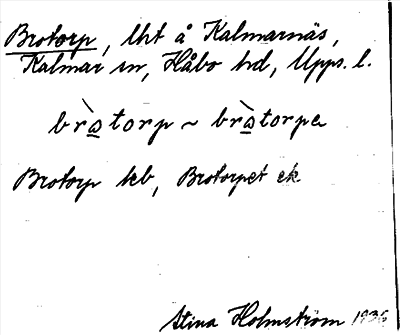 Brotorp, lht å Kalmarnäs,
Kalmar sn, Håbo hd, Upps. l.
br̀o̲torp ~ br̀o̲torpa
Brotorp kb, Brotorpet ek
Stina Holmström 1936